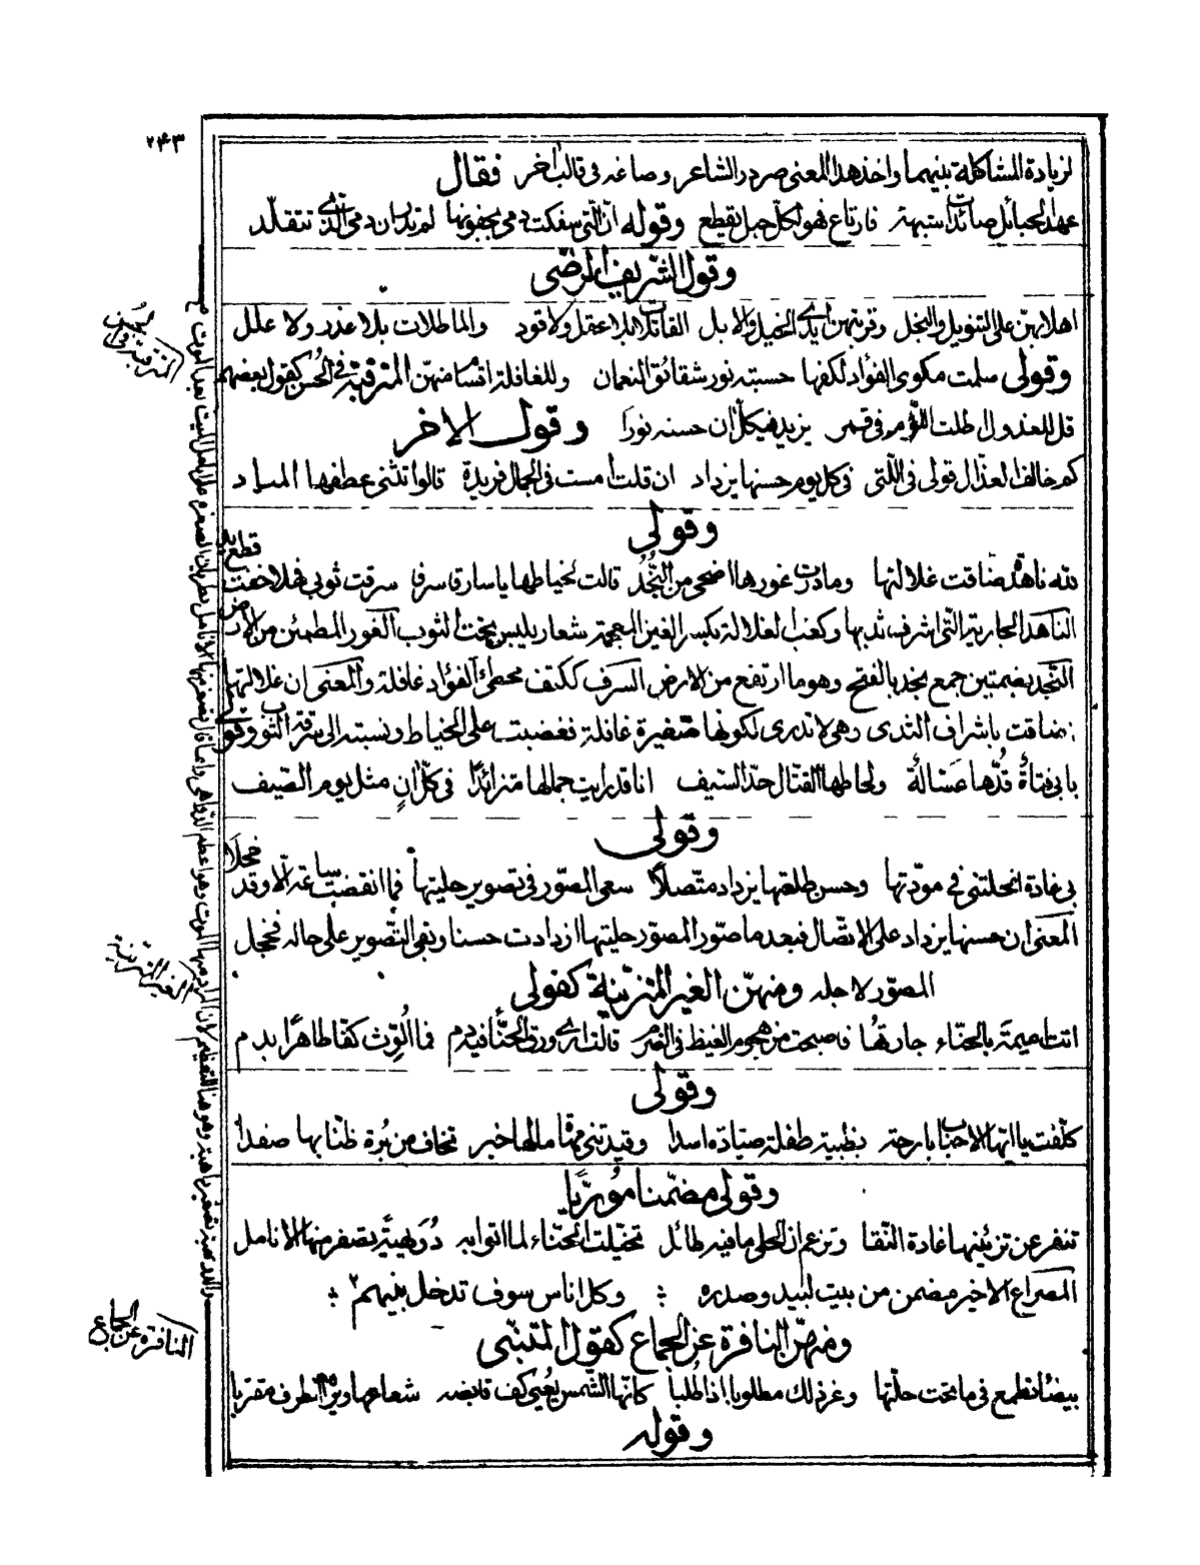 ٢٤٣
لزيادة المشاكلة بينهما واخذ هذا المعنى صردر الشاعر وصاغه فى قالب اخر فقال
عهد الحبائل صائدات شبهه فارتاع فهو لكل حبل يقطع وقوله ان التى سفكت دمى بجفونها لم تدر ان دمى الذى تتقلد
وقول الشريف المرضى
اهلا بهن على التنويل والبخل وقربتهن ايدى الخيل والابل القاتلات بلا عقل ولا قود والماطلات بلا عذر ولا علل
وقولى سلمت مكوى الفؤاد لكفها حسبته نور شقائق النعمان وللغافلة اقسام منهن المترقية فى الحسن كقول بعضهم
قل للعذول اطلت اللوم فى قمر يزيد فى كل ان حسنه نورا وقول الاخر
كم خالف العذال قولى فى التى فى كل يوم حسنها يزداد ان قلت امست فى الجمال فريدة قالوا تثنى عطفها المياد
وقولى
لله ناهدة ضاقت غلالتها وما درت غورها اضحى من النجد قالت لخياطها يا سارقا سرفا سرقت ثوبى فهلا خفت قطع يد
الناهد الجارية التى اشرف ثديها وكعب الغلالة بكسر الغين المعجمة شعار يلبس تحت الثوب الغور المطمئن من الارض
النجد بضمتين جمع نجد بالفتح وهو ما ارتفع من الارض السرف ككتف مخطئ الفؤاد غافلة والمعنى ان غلالتها
ضاقت باشراف الثدى وهى لا تدرى لكونها صغيرة غافلة فغضبت على الخياط ونسبته الى سرقة الثوب وقولى
بابى فتاة قدها عسالة ولحاظها القتال حد السيف انا قد رايت جمالها متزائدا فى كل ان مثل يوم الصيف
وقولى
بى غادة انحلتنى فى مودتها وحسن طلعتها يزداد متصلا سعى المصور فى تصوير حليتها فما انقضت ساعة الا وقد خجلا
المعنى ان حسنها يزداد على الاتصال فبعد ما صور المصور حليتها ازدادت حسنا وبقى التصوير على حاله فخجل
المصور لاجله ومنهن الغير المتزينة كقولى
اتت اميمة بالحناء جارتها فاصبحت من هجوم الغيظ فى الضرم قالت ارى ورق الحنا فيه دم فما الوث كفا طاهرا بدم
وقولى
كلفت يا ايها الاحباب بارحة بظبية طفلة صيادة اسدا وقيدتنى مهاة ما لها خبر تخاف من برة ظنا بها صفدا
وقولى مضمنا موريا
تنفر عن تزيينها غادة النقا وتزعم ان الحلى ما فيه طائل تخيلت الحناء لما اتوا به دويهية تصفر منها الانامل
المصراع الاخير مضمن من بيت لبيد وصدره وكل اناس سوف تدخل بينهم
ومنهن النافرة عن الجماع كقول المتنبى
بيضاء تطمع فى ما تحت حلتها وعز ذلك مطلوبا اذا طلبا كانها الشمس يعيى كف قابضه شعاعها ويراه الطرف مقتربا
وقوله
المترقية فى الحسن
الغير المتزينة
النافرة عن الجماع